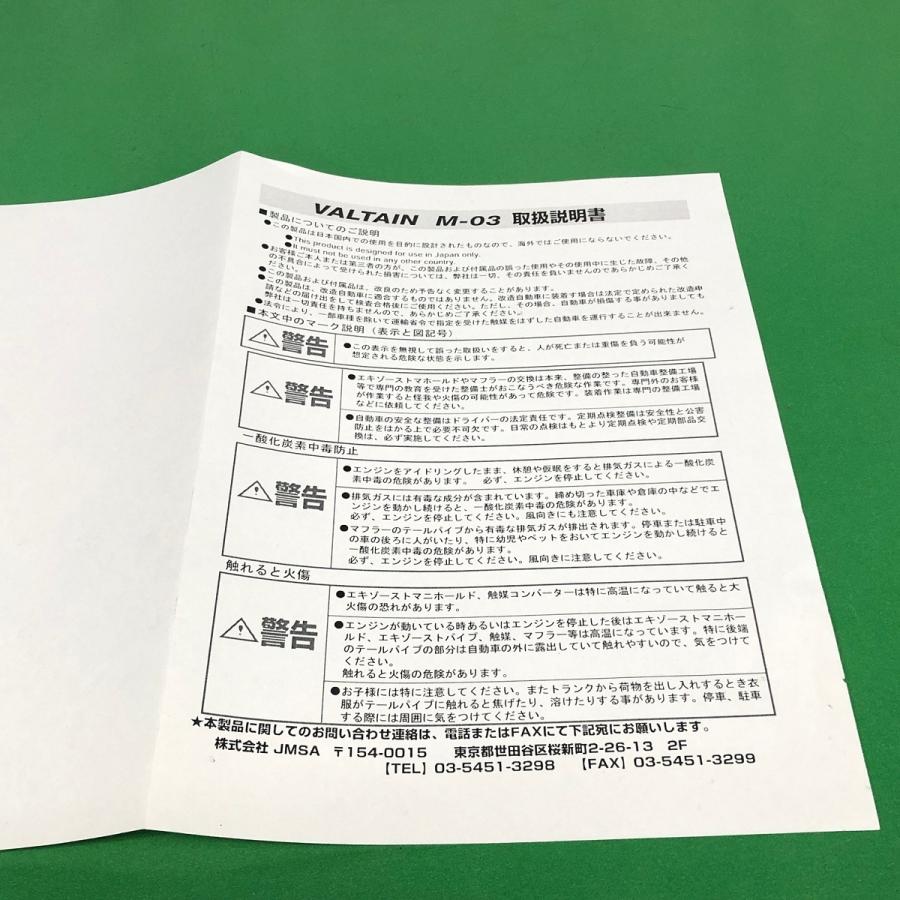 VALTAIN M-03 取扱説明書
■製品についてのご説明
●この製品は日本国内での使用を目的に設計されたものなので、海外ではご使用にならないでください。
●This product is designed for use in Japan only.
●It must not be used in any other country.
●お客様ご本人または第三者の方が、この製品および付属品の誤った使用やその使用中に生じた故障、その他
の不具合によって受けられた損害については、弊社は一切、その責任を負いませんのであらかじめご了承く
ださい。
●この製品および付属品は、改良のため予告なく変更することがあります。
●この製品は、改造自動車に適合するものではありません。改造自動車に装着する場合は法定で定められた改造申
請などの届け出をして検査合格後にご使用ください。ただし、その場合、自動車が損傷する事がありましても
弊社は一切責任を持ちませんので、あらかじめご了承ください。
●法令により、一部車種を除いて運輸省令で指定を受けた触媒をはずした自動車を運行することが出来ません。
■本文中のマーク説明（表示と図記号）
警告
●この表示を無視して誤った取扱いをすると、人が死亡または重傷を負う可能性が
想定される危険な状態を示します。
警告
●エキゾーストマホールドやマフラーの交換は本来、整備の整った自動車整備工場
等で専門の教育を受けた整備士がおこなうべき危険な作業です。専門外のお客様
が作業すると怪我や火傷の可能性があって危険です。装着作業は専門の整備工場
などに依頼してください。
●自動車の安全な整備はドライバーの法定責任です。定期点検整備は安全性と公害
防止をはかる上で必要不可欠です。日常の点検はもとより定期点検や定期部品交
換は、必ず実施してください。
一酸化炭素中毒防止
警告
●エンジンをアイドリングしたまま、休憩や仮眠をすると排気ガスによる一酸化炭
素中毒の危険があります。 必ず、エンジンを停止してください。
●排気ガスには有毒な成分が含まれています。締め切った車庫や倉庫の中などでエ
ンジンを動かし続けると、一酸化炭素中毒の危険があります。
必ず、エンジンを停止してください。風向きにも注意してください。
●マフラーのテールパイプから有毒な排気ガスが排出されます。停車または駐車中
の車の後ろに人がいたり、特に幼児やペットをおいてエンジンを動かし続けると
一酸化炭素中毒の危険があります。
必ず、エンジンを停止してください。風向きに注意してください。
触れると火傷
警告
●エキゾーストマニホールド、触媒コンバーターは特に高温になっていて触ると大
火傷の恐れがあります。
●エンジンが動いている時あるいはエンジンを停止した後はエキゾーストマニホー
ルド、エキゾーストパイプ、触媒、マフラー等は高温になっています。特に後端
のテールパイプの部分は自動車の外に露出していて触れやすいので、気をつけて
ください。
触れると火傷の危険があります。
●お子様には特に注意してください。またトランクから荷物を出し入れするとき衣
服がテールパイプに触れると焦げたり、溶けたりする事があります。停車、駐車
する際には周囲に気をつけてください。
★本製品に関してのお問い合わせ連絡は、電話またはFAXにて下記宛にお願いします。
株式会社 JMSA 〒154-0015 東京都世田谷区桜新町2-26-13 2F
【TEL】03-5451-3298 【FAX】03-5451-3299